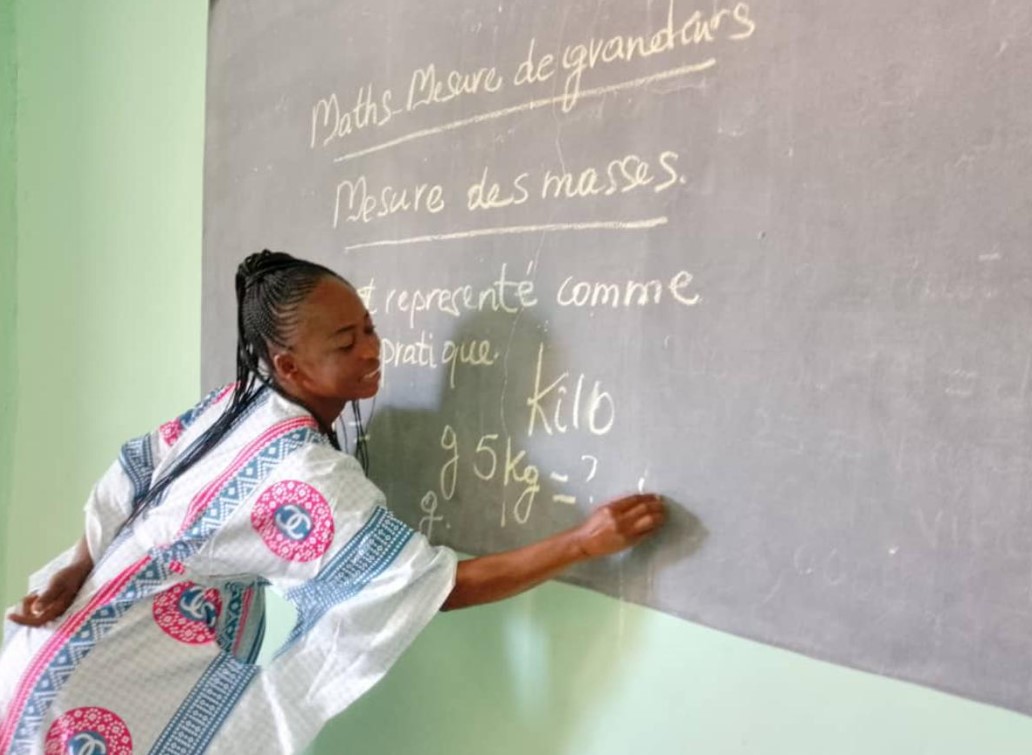 Maths-Mesure de grandeurs
Mesure des masses.
t representé comme
pratique.
Kilo
g 5kg = ?
g.